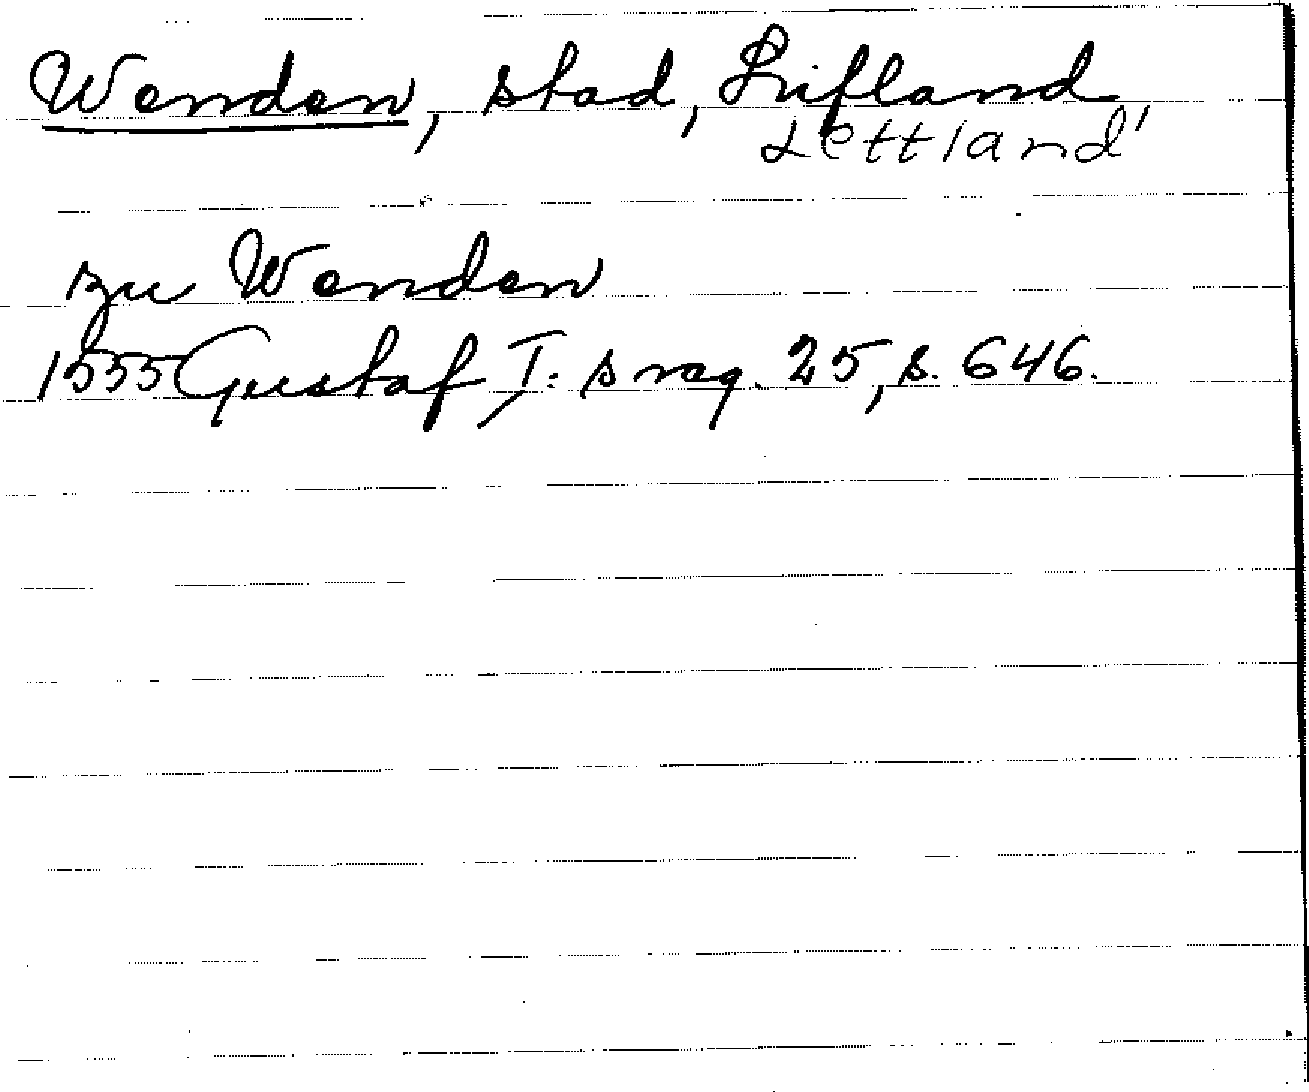 Wenden, stad, Lifland,
Lettland
zu Wenden
1555 Gustaf I:s reg. 25, s. 646.